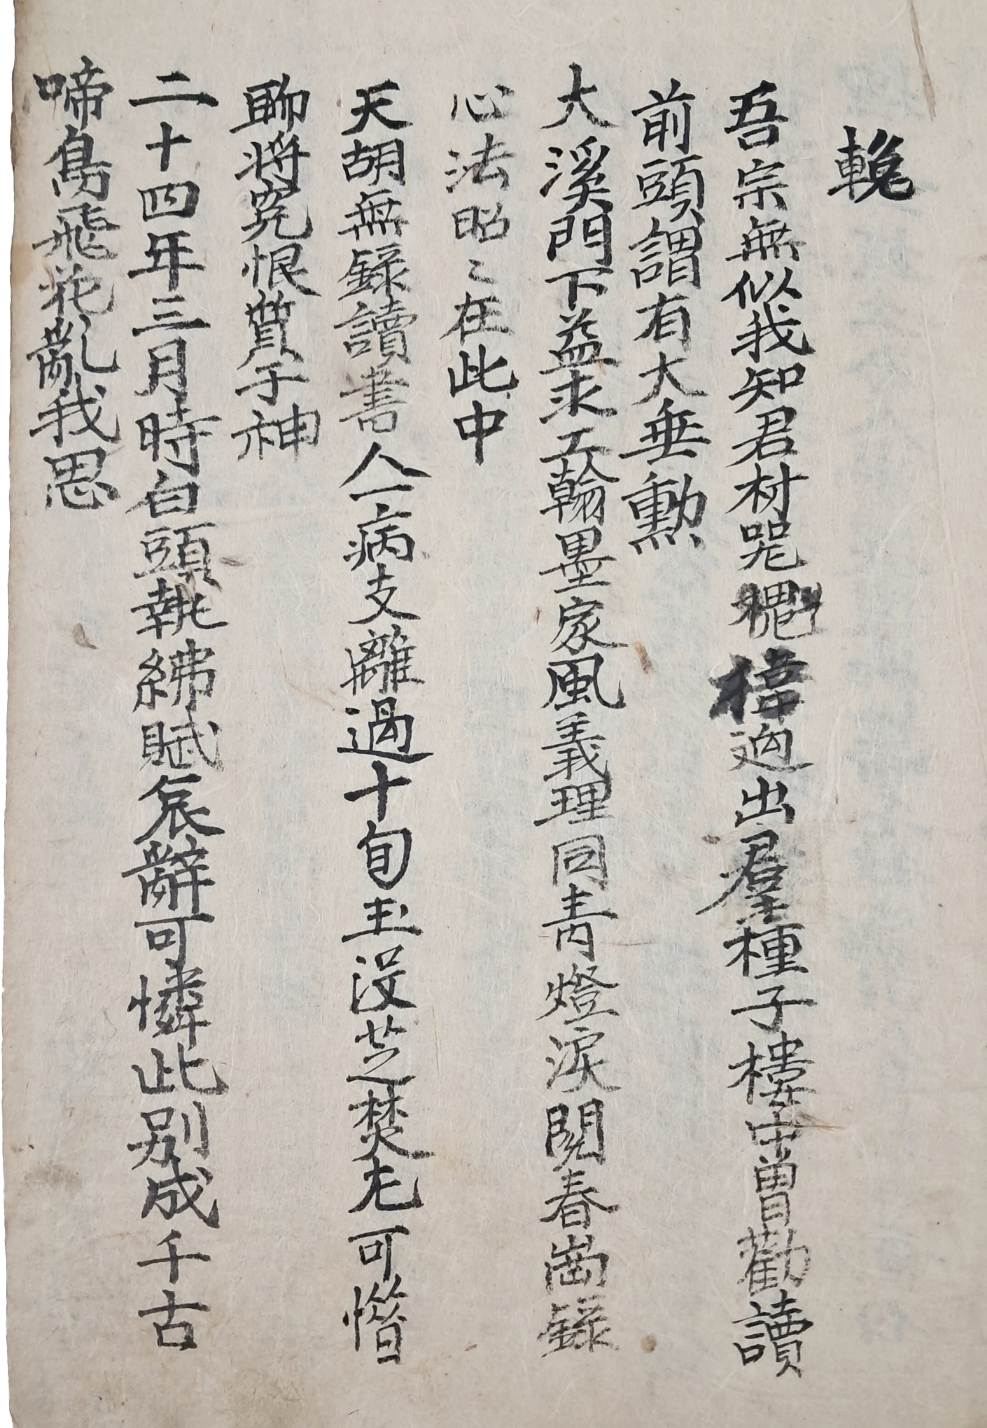 輓
吾宗無似我知君材咒禠偉逈出羣種子樓中曾勸讀
前頭謂有大垂勳
大溪門下益求工翰墨家風義理同靑燈淚閱春崗錄
心法昭〻在此中
天胡無錄讀書人一病支離過十旬玉沒芝焚尤可惜
聊將寃恨質于神
二十四年三月時白頭執紼賦哀辭可憐此別成千古
啼鳥飛花亂我思